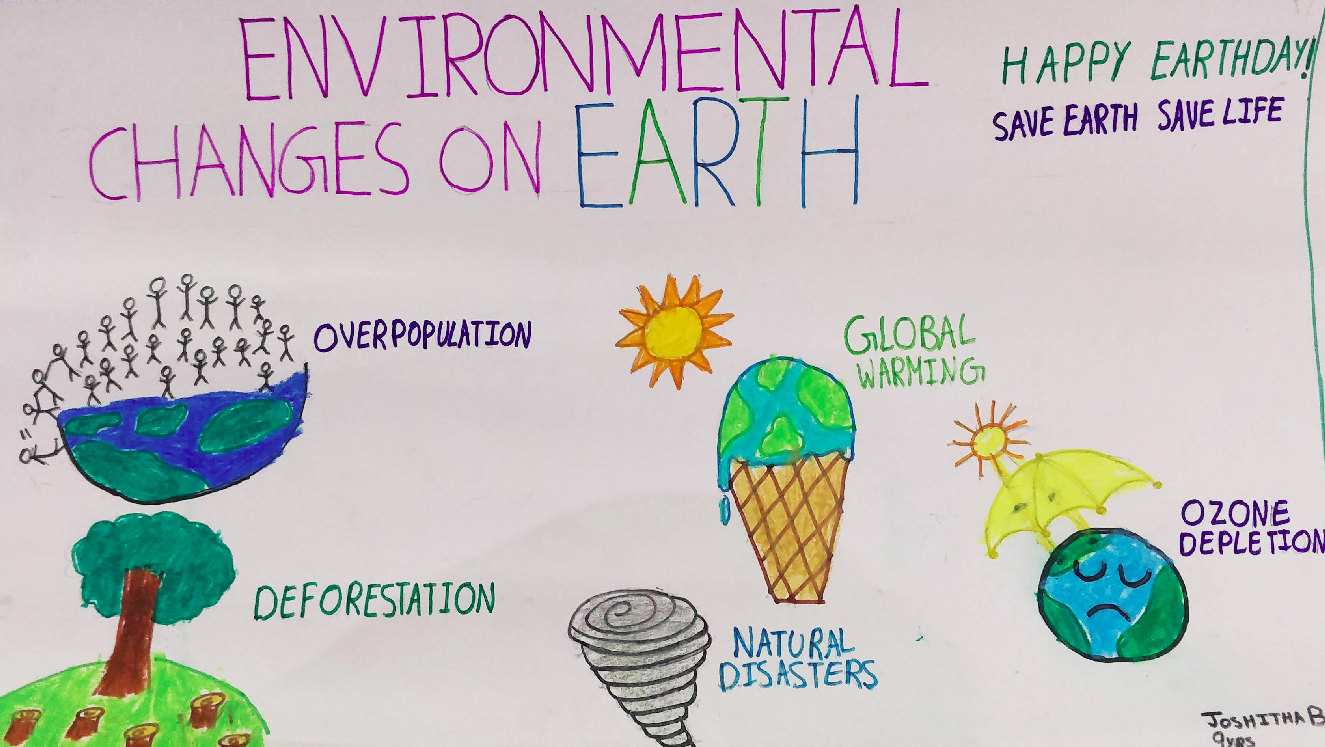 ENVIRONMENTAL
CHANGES ON EARTH
HAPPY EARTHDAY!
SAVE EARTH SAVE LIFE
OVERPOPULATION
GLOBAL
WARMING
OZONE
DEPLETION
DEFORESTATION
NATURAL
DISASTERS
JOSHITHA B
9yrs